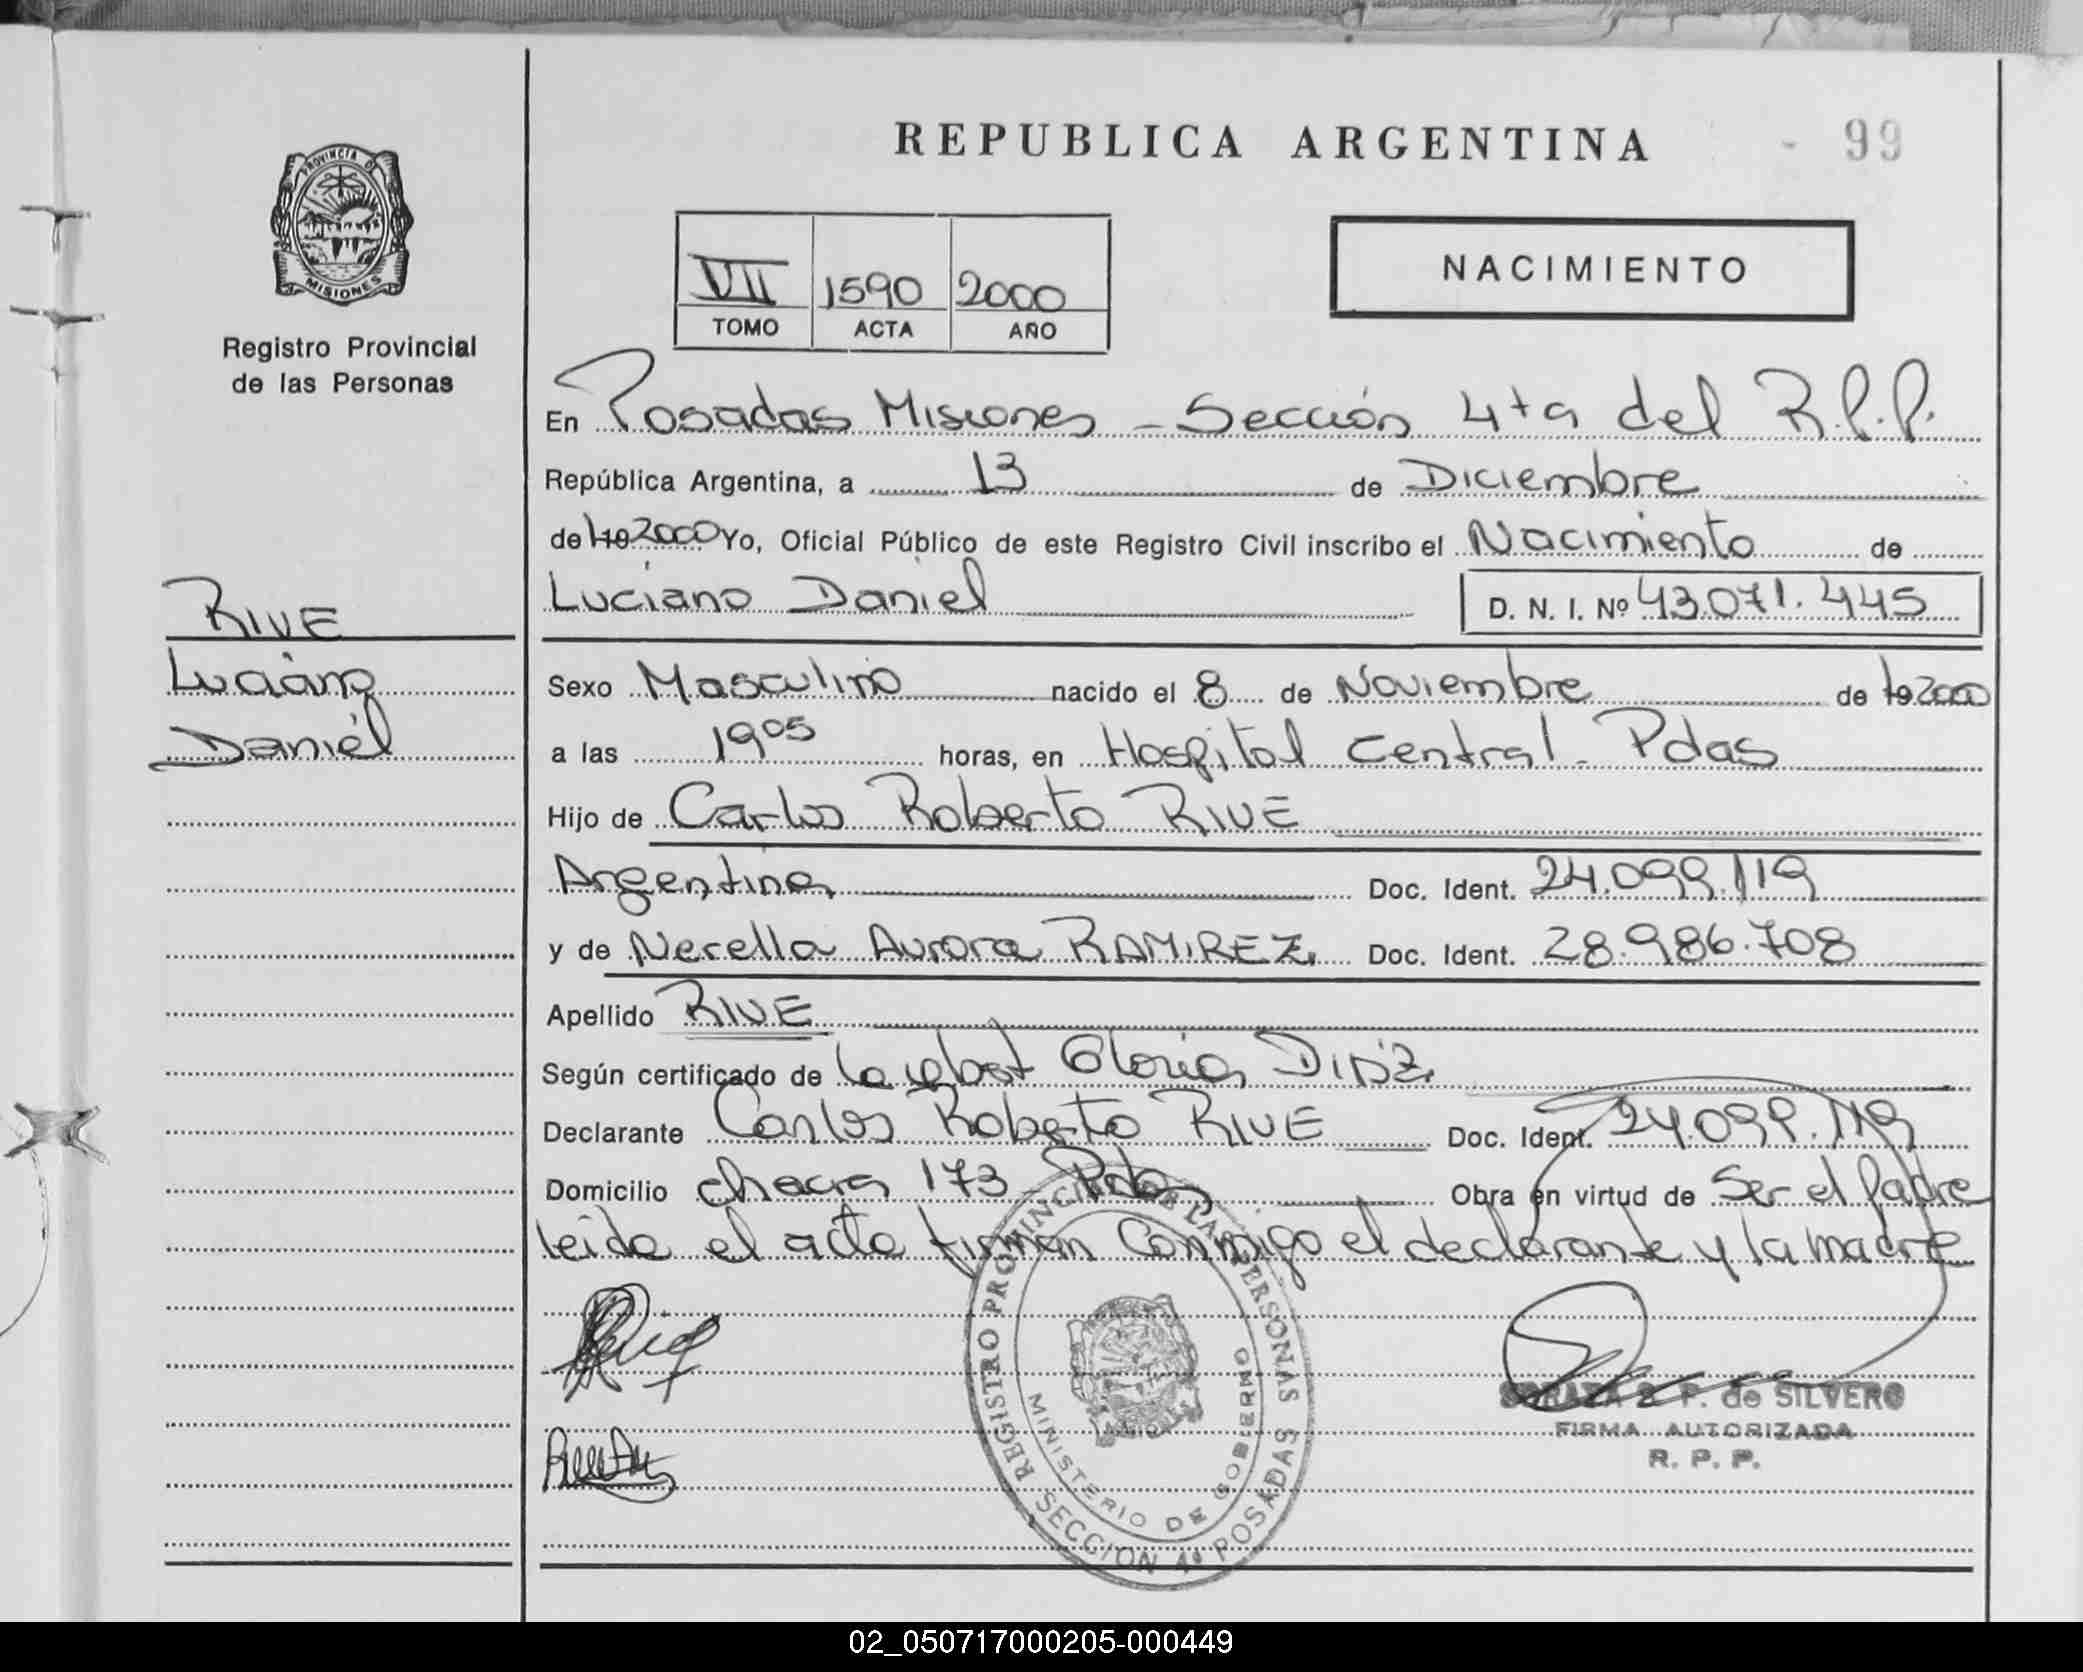 REPUBLICA ARGENTINA - 99
PROVINCIA DE
MISIONES
Registro Provincial
de las Personas
NACIMIENTO
VII 1590 2000
TOMO ACTA AÑO
En Posadas Misiones - Sección 4ta del R.P.P.
República Argentina, a 13 de Diciembre
de 19 2000 Yo, Oficial Público de este Registro Civil inscribo el Nacimiento de
Luciano Daniel D. N. I. Nº 43.071.445
RIVE
Luciano
Daniel
Sexo Masculino nacido el 8 de Noviembre de 19 2000
a las 19 05 horas, en Hospital Central - Pdas
Hijo de Carlos Roberto RIVE
Argentina Doc. Ident. 24.099.119
y de Nerella Aurora RAMIREZ Doc. Ident. 28.986.708
Apellido RIVE
Según certificado de la obst Gloria
Declarante Carlos Roberto RIVE Doc. Ident. 24.099.119
Domicilio chacra 173 Pdas Obra en virtud de Ser el Padre
leida el acta firman conmigo el declarante y la madre
REGISTRO PROVINCIAL DE LAS PERSONAS
MINISTERIO DE GOBIERNO
SECCION 4ª POSADAS
P. de SILVERO
FIRMA AUTORIZADA
R. P. P.
02_050717000205-000449